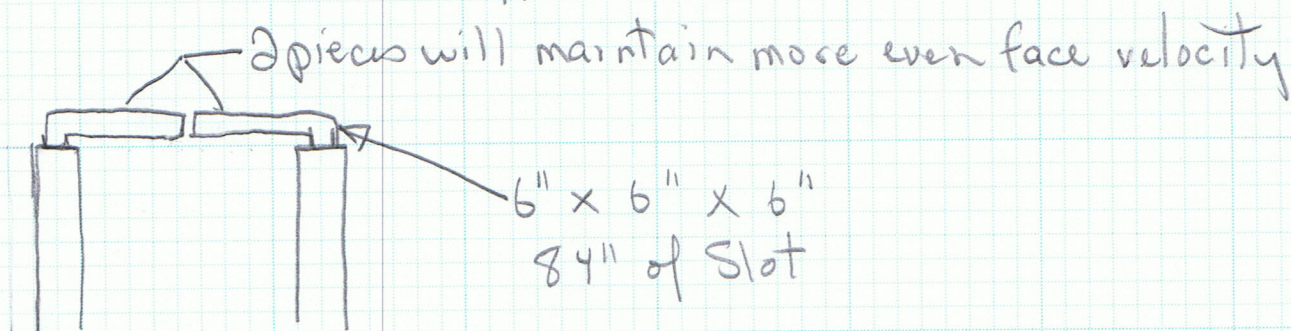 2 pieces will maintain more even face velocity
6" x 6" x 6"
84" of Slot